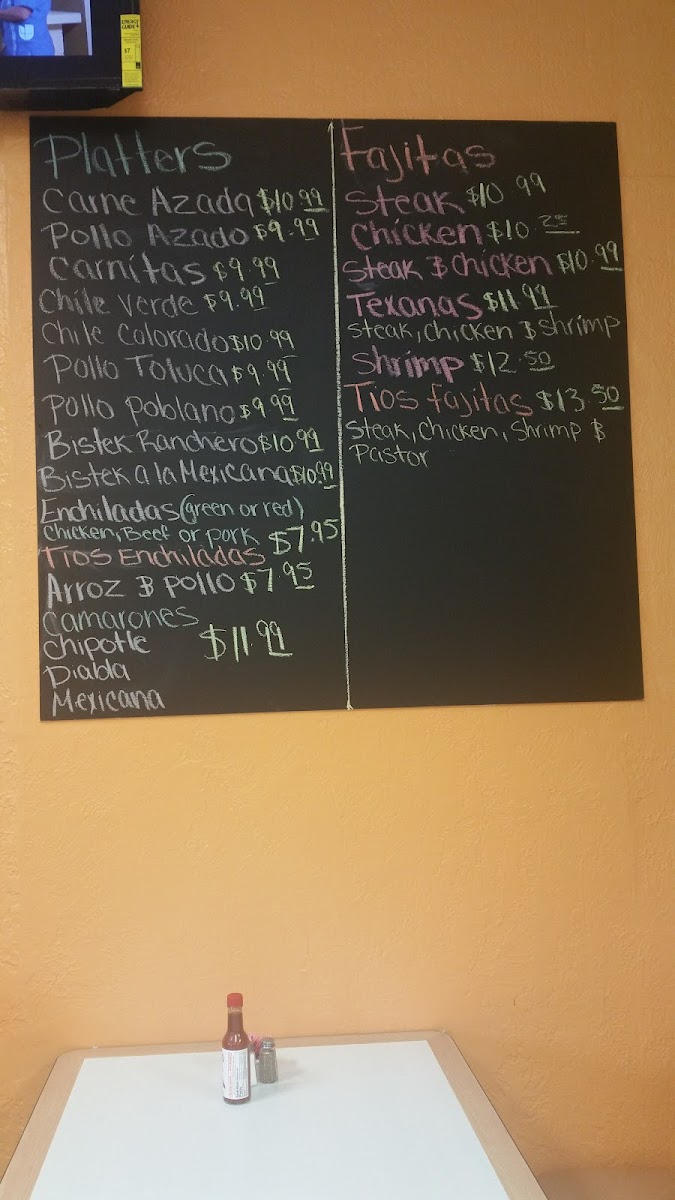 ENERGY GUIDE
$7
Platters
Carne Azada $10.99
Pollo Azado $9.99
Carnitas $9.99
Chile Verde $9.99
Chile Colorado $10.99
Pollo Toluca $9.99
Pollo Poblano $9.99
Bistek Ranchero $10.99
Bistek a la Mexicana $10.99
Enchiladas (green or red)
Chicken, Beef or pork $7.95
Tios Enchiladas
Arroz & pollo $7.95
Camarones
Chipotle $11.99
Diabla
Mexicana
Fajitas
Steak $10.99
Chicken $10.25
Steak & chicken $10.99
Texanas $11.99
steak, chicken & shrimp
Shrimp $12.50
Tios fajitas $13.50
steak, chicken, shrimp &
Pastor